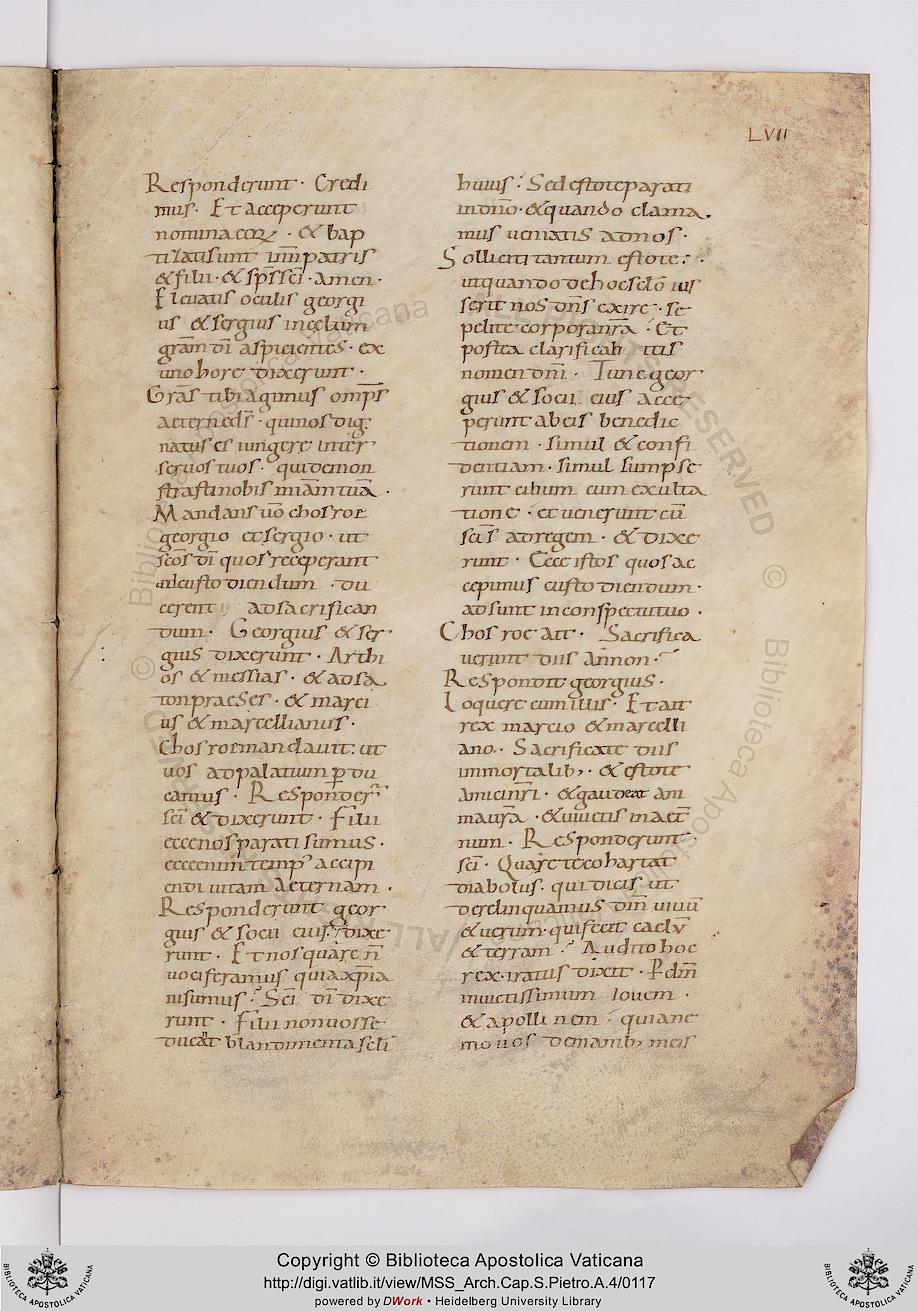 LVII
Responderunt · Credi
mus · Et acceperunt
nomina eoꝝ · & bap
tizati sunt in nn̄ patris
& filii · & sp̄s sc̄i · amen ·
Eleuatis oculis georgi
us & sergius in celum
gram̄ dī aspicientes · ex
uno hore dixerunt ·
Grās tibi agimus omp̄s
aeterne ds̄ · qui nos dig
natus es iungere inter
seruos tuos · qui demon
strasti nobis miām tuā ·
Mandans uō chosroe
georgio et sergio · ut
sc̄os dī quos receperant
ad custodiendum · du
cerent ad sacrifican
dum · Georgius & ser
gius dixerunt · Arthi
os & messias · & adsa
ton praeses · & marci
us & marcellianus ·
Chosroe mandauit : ut
uos ad palatium ꝑdu
camus · Responder̄
sc̄i & dixerunt · Filii
ecce nos parati sumus ·
ecce enim temp' accipi
endi uitam aeternam ·
Responderunt geor
gius & socii eius · dixe
runt · Et nos quare n̄
uociferamus quia xp̄ia
ni sumus · Sc̄i dī dixe
runt · Filii non uos se
ducat blandimenta sc̄li
huius : Sed estote parati
in dnō · & quando clama
mus ueniatis ad nos ·
Solliciti tantum estote :
ut quando de hoc sc̄lo ius
serit nos dn̄s exire · se
pelite corpora nrā · Et
postea clarificabitis
nomen dn̄i · Tunc geor
gius & socii eius acce
perunt ab eis benedic
tionem · simul & confi
dentiam · simul sumpse
runt cibum cum exulta
tione · et uenerunt cū
sc̄is ad regem · & dixe
runt · Ecce istos quos ac
cepimus custodiendum ·
adsunt in conspectu tuo ·
Chosroe ait · Sacrifica
uerunt diis an non ·
Respondit georgius ·
Loquere cum illis · Et ait
rex marcio & marcelli
ano · Sacrificate diis
immortalib; · & estote
amici nr̄i · & gaudeat ani
ma ur̄a · & uiuetis in aet̄
num · Responderunt
sc̄i · Quare te cohartat
diabolus · qui dicis ut
derelinquamus dm̄ uiuū
& uerum · qui fecit caelū
& terram · Audito hoc
rex · iratus dixit · P dm̄
inuictissimum iouem ·
& apollinem · quia ne
mo uos de manib; meis
Copyright © Biblioteca Apostolica Vaticana
http://digi.vatlib.it/view/MSS_Arch.Cap.S.Pietro.A.4/0117
powered by DWork • Heidelberg University Library